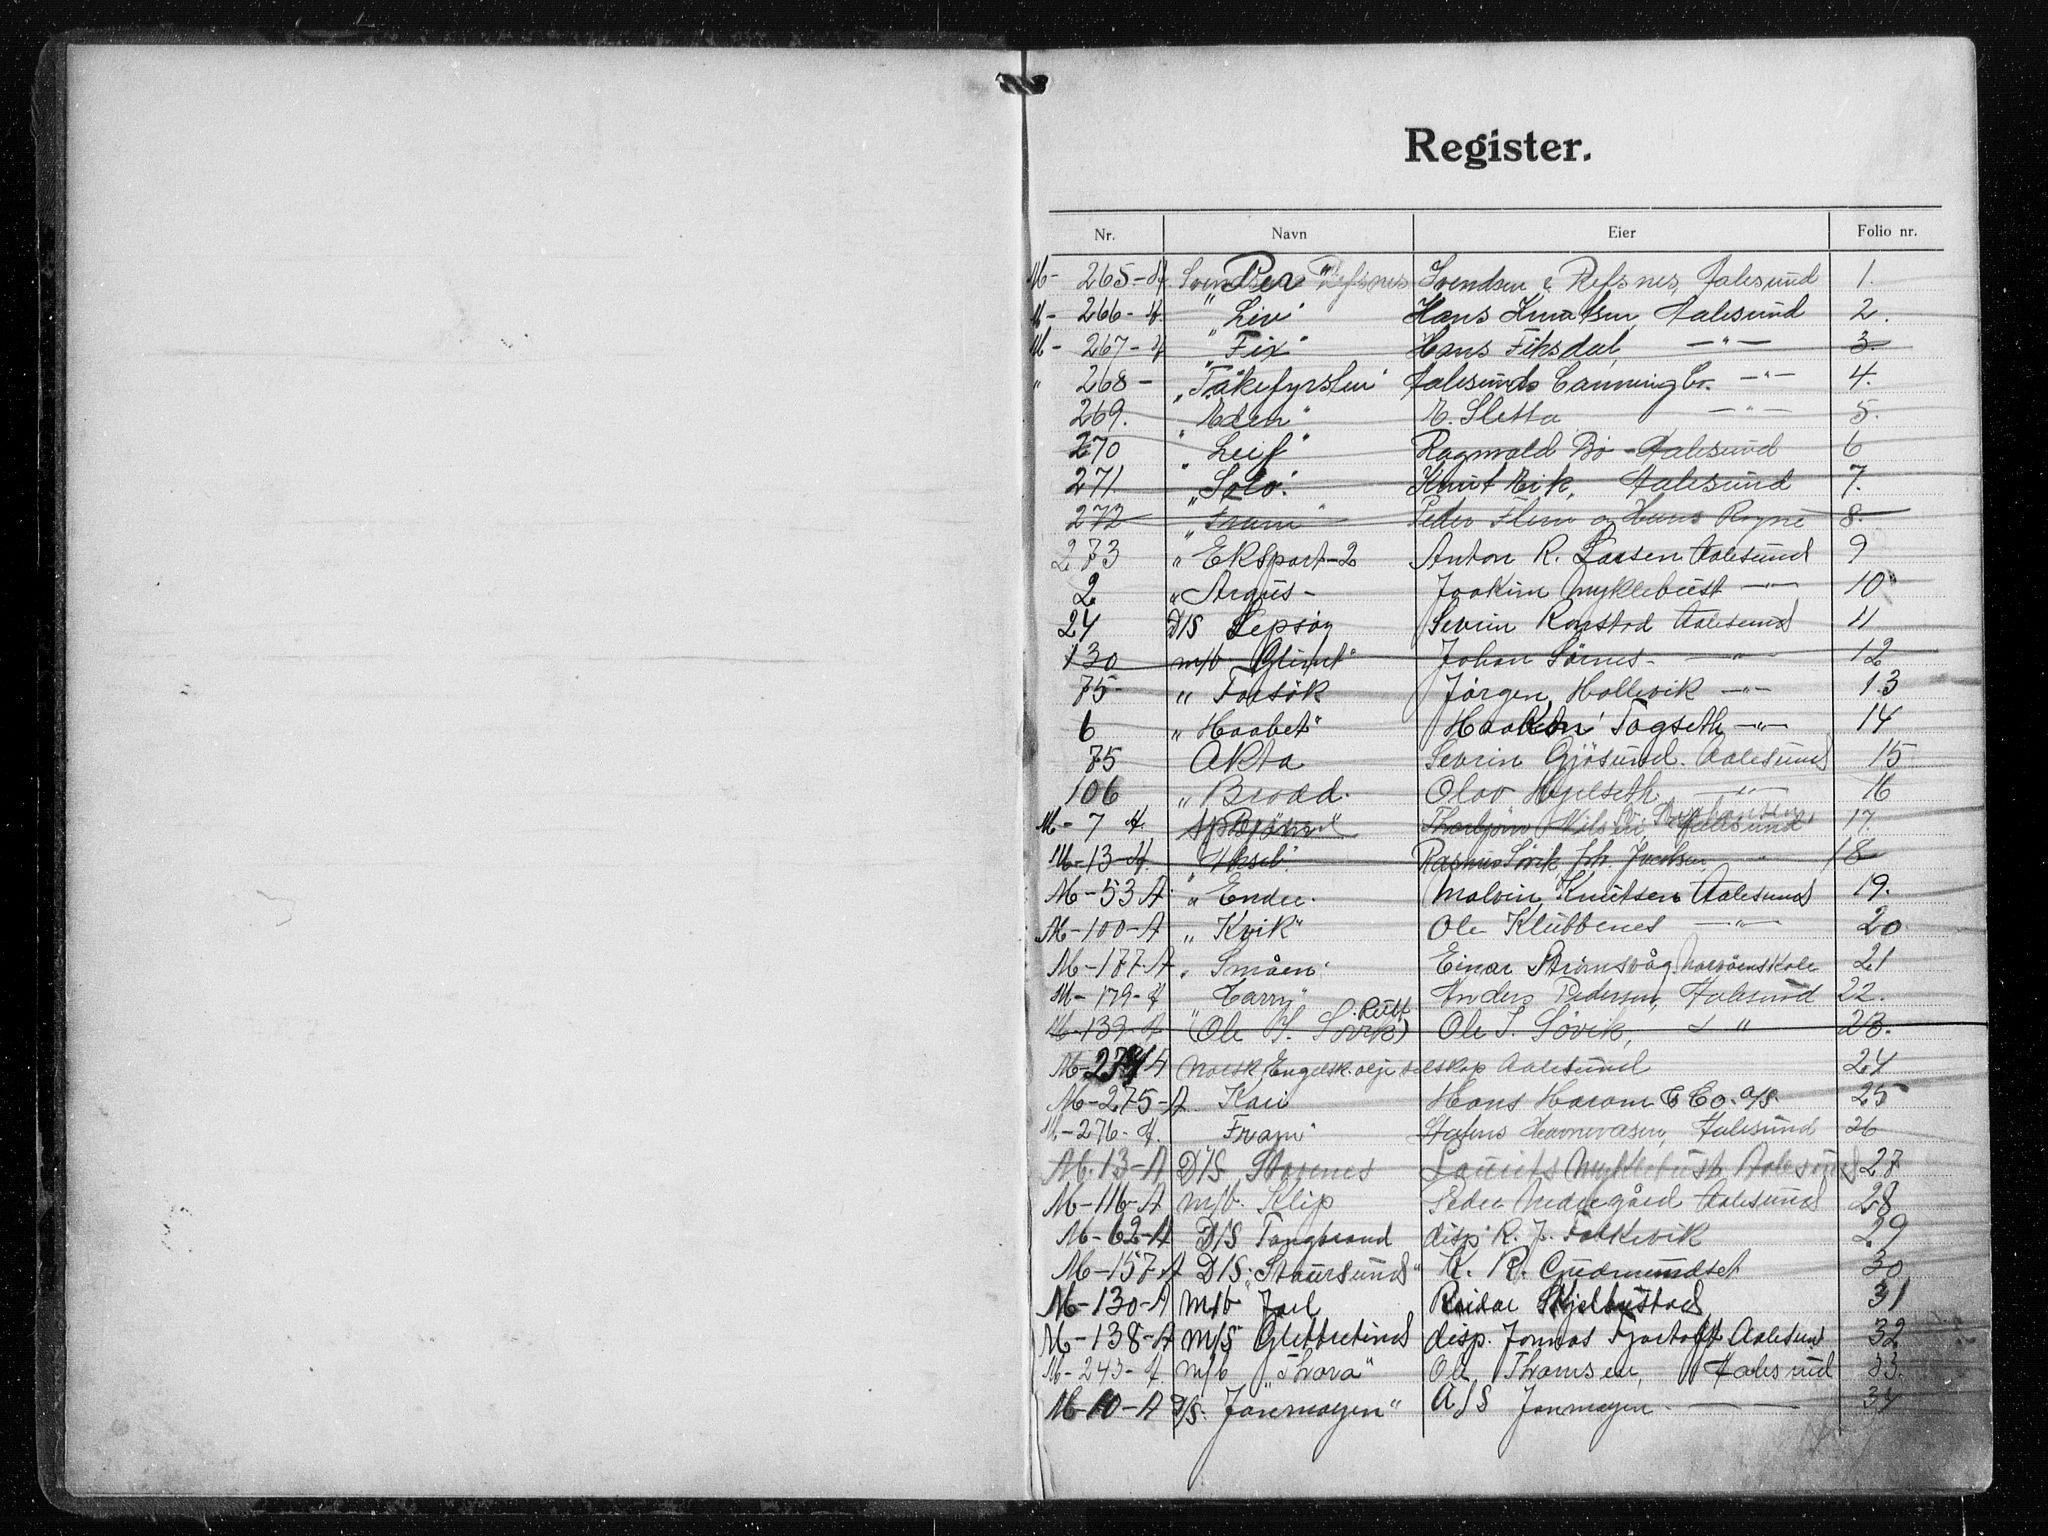 Register.
Nr. Navn Eier Folio nr.
M- 265-A. "Per" Svendsen & Refsnes, Aalesund 1.
M- 266-A. "Liv" Hans Knutsen, Aalesund 2.
M- 267-A "Fix" Hans Fiksdal, -"- 3.
" 268- "Tåkefyrsten" Aalesunds Canning Co. -"- 4.
269. "Eden" E. Sletta -"- 5.
270 "Leif" Ragnvald Bö - Aalesund 6
271. "Solo". Knut Eik, Aalesund 7.
272 "Fram" Peder Flem og Hans Rogne 8.
273 "Eksport-2 Anton R. Larsen Aalesund 9
2 "Argus- Joakim Myklebust -"- 10
24 D/S Lepsøy Sevrin Ronstad Aalesund 11
130 m/b Glimt" Johan Sörnes- -"- 12
75- " Forsök Jørgen Hollevik -"- 13
6 "Haabet" Haakon Togseth -"- 14
75 Akta Sevrin Gjösund. Aalesund 15
106 "Brodd. Olav Hjelseth. -"- 16
M- 7 A. "Björn" Thorbjörn Nilsen, Aalesund 17.
M-13-A. "Aksel". Rasmus Søvik, Joh. Jacobsen, " 18
M-53 A " Endre. Malvin Knutsen Aalesund 19.
M-100-A "Kvik" Ole Klubbenes -"- 20
M-177-A "Småen" Einar Strømsvåg, Norvöenskole 21
M- 179-A "Harry" Anders Pedersen, Aalesund 22.
M-139-A "(Ole H. Søvik) Rutt Ole S. Søvik, " 23.
M-274 A Norsk, Engelsk. olje selskap Aalesund 24
M-275-A Kari Hans Haram & Co. A/S. 25
M-276-A. Fram" Havnevæsen, Aalesund 26
M-13-A D/S Storenes Laurits Myklebust Aalesund 27
M-116-A m/b. Klip Peder Nedregård Aalesund 28
M-62-A D/S Tangbrand disp R. J. Falkevik 29
M-157-A D/S. "Staursund" K. R. Gudmundset 30
M-130-A m/b Jarl Reidar Skjelbustad 31
M-138-A m/S Glittertind disp. Jonas Fjørtoft Aalesund 32
M-243-A. m/b "Thora" Ole Thomsen, Aalesund 33.
M-10-A D/S. Janmayen" A/S Janmayen - - - 34